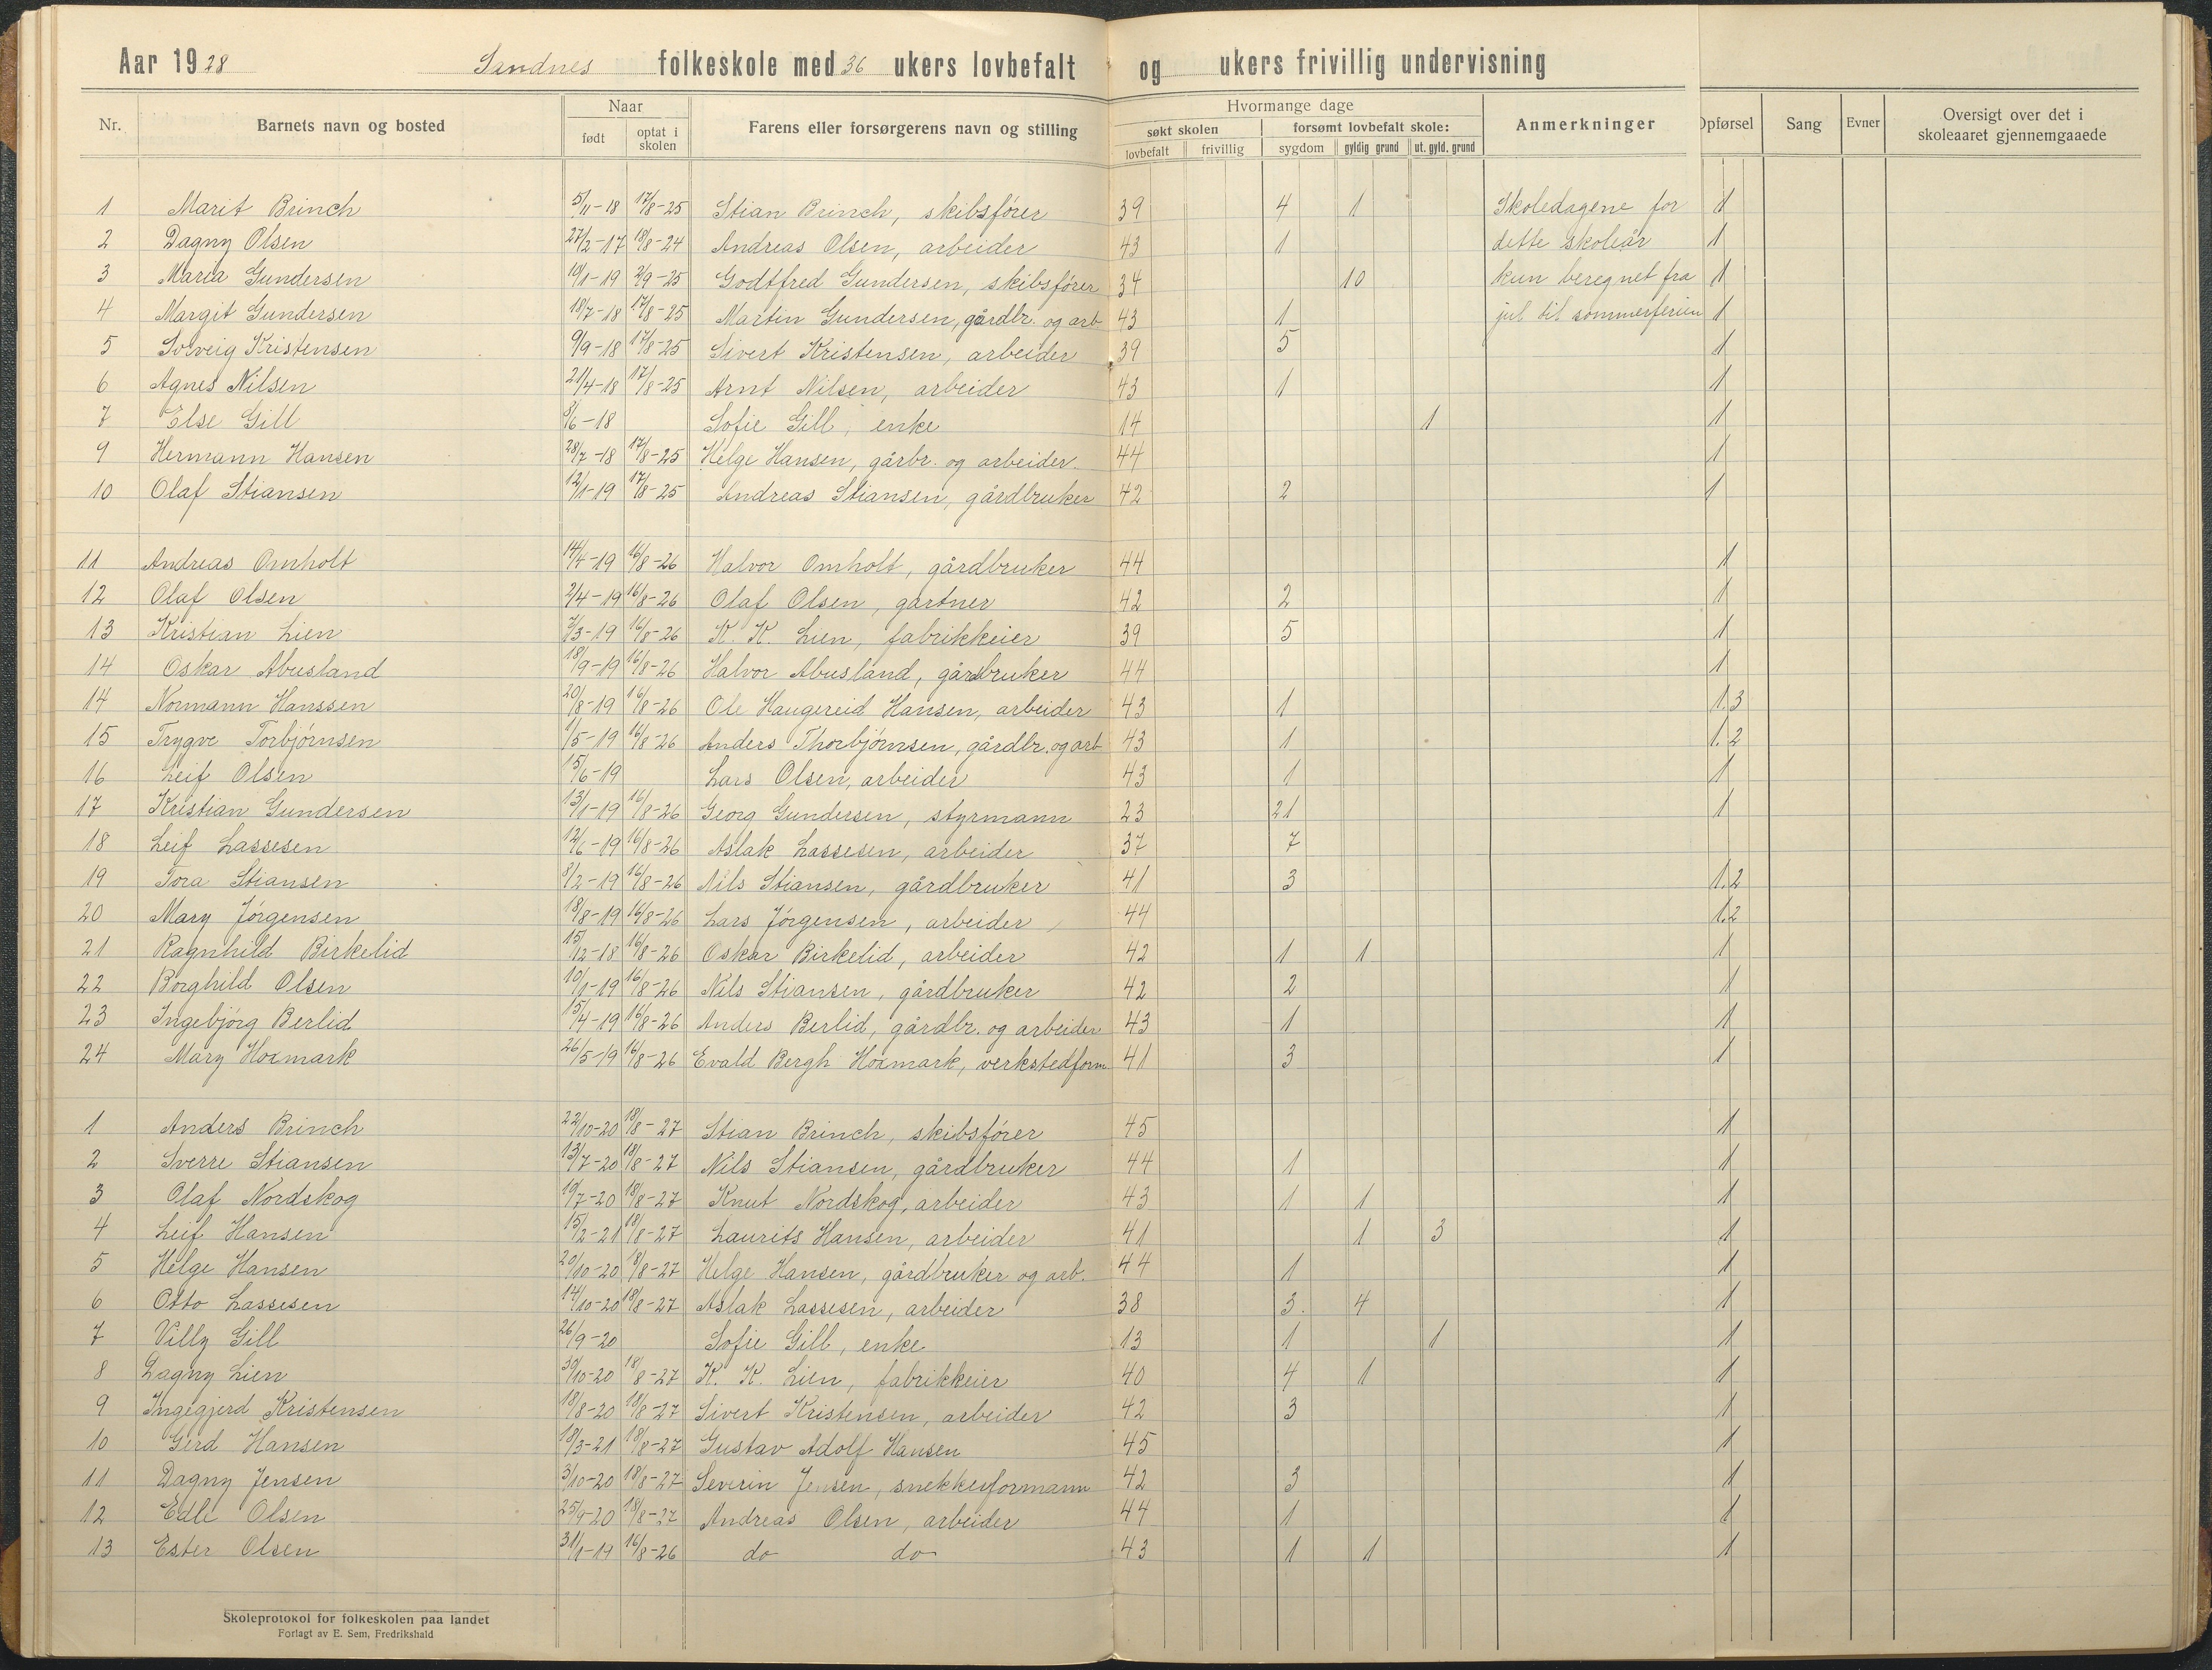 Aar 1928 Sandnes folkeskole med 36 ukers lovbefalt og ukers frivillig undervisning
Nr. Barnets navn og bosted Naar født optat i skolen Farens eller forsørgerens navn og stilling Hvormange dage søkt skolen lovbefalt frivillig forsømt lovbefalt skole: sygdom gyldig grund ut. gyld. grund Anmerkninger Opførsel Sang Evner Oversigt over det i skoleaaret gjennemgaaede
1 Marit Brinch 5/11-18 17/8-25 Stian Brinch, skibsfører 39 4 1 Skoledagene for 1
2 Dagny Olsen 27/2-17 18/8-24 Andreas Olsen, arbeider 43 1 dette skoleår 1
3 Maria Gundersen 10/1-19 2/9-25 Godtfred Gundersen, skibsfører 34 10 kun beregnet fra 1
4 Margit Gundersen 18/7-18 17/8-25 Martin Gundersen, gårdbr. og arb 43 1 jul til sommerferien 1
5 Solveig Kristensen 9/9-18 17/8-25 Sivert Kristensen, arbeider 39 5 1
6 Agnes Nilsen 21/4-18 17/8-25 Arnt Nilsen, arbeider 43 1 1
7 Else Gill 8/6-18 Sofie Gill, enke 14 1 1
9 Hermann Hansen 28/7-18 17/8-25 Helge Hansen, gårbr. og arbeider. 44 1
10 Olaf Stiansen 12/1-19 17/8-25 Andreas Stiansen, gårdbruker 42 2 1
11 Andreas Omholt 14/4-19 16/8-26 Halvor Omholt, gårdbruker 44 1
12 Olaf Olsen 2/4-19 16/8-26 Olaf Olsen, gartner 42 2 1
13 Kristian Lien 7/3-19 16/8-26 K. K. Lien, fabrikkeier 39 5 1
14 Oskar Abusland 18/9-19 16/8-26 Halvor Abusland, gårdbruker 44 1
14 Normann Hanssen 20/8-19 16/8-26 Ole Haugereid Hansen, arbeider 43 1 1.3
15 Trygve Torbjørnsen 1/5-19 16/8-26 Anders Thorbjørnsen, gårdbr. og arb 43 1 1.2
16 Leif Olsen 15/6-19 Lars Olsen, arbeider 43 1 1
17 Kristian Gundersen 13/1-19 16/8-26 Georg Gundersen, styrmann 23 21 1
18 Leif Lassesen 12/6-19 16/8-26 Aslak Lassesen, arbeider 37 7
19 Tora Stiansen 8/2-19 16/8-26 Nils Stiansen, gårdbruker 41 3 1.2
20 Mary Jørgensen 18/8-19 16/8-26 Lars Jørgensen, arbeider 44 1.2
21 Ragnhild Birkelid 15/12-18 16/8-26 Oskar Birkelid, arbeider 42 1 1 1
22 Borghild Olsen 10/1-19 16/8-26 Nils Stiansen, gårdbruker 42 2 1
23 Ingebjørg Berlid 15/4-19 16/8-26 Anders Berlid, gårdbr. og arbeider 43 1 1
24 Mary Hoxmark 26/5-19 16/8-26 Evald Bergh Hoxmark, verkstedform. 41 3 1
1 Anders Brinch 22/10-20 18/8-27 Stian Brinch, skibsfører 45 1
2 Sverre Stiansen 13/7-20 18/8-27 Nils Stiansen, gårdbruker 44 1 1
3 Olaf Nordskog 19/7-20 18/8-27 Knut Nordskog, arbeider 43 1 1 1
4 Leif Hansen 15/2-21 18/8-27 Laurits Hansen, arbeider 41 1 3 1
5 Helge Hansen 20/10-20 18/8-27 Helge Hansen, gårdbruker og arb. 44 1 1
6 Otto Lassesen 14/10-20 18/8-27 Aslak Lassesen, arbeider 38 3. 4 1
7 Villy Gill 26/9-20 Sofie Gill, enke 13 1 1 1
8 Dagny Lien 30/10-20 18/8-27 K. K. Lien, fabrikkeier 40 4 1 1
9 Ingegjerd Kristensen 18/8-20 18/8-27 Sivert Kristensen, arbeider 42 3 1
10 Gerd Hansen 18/3-21 18/8-27 Gustav Adolf Hansen 45 1
11 Dagny Jensen 3/10-20 18/8-27 Severin Jensen, snekkerformann 42 3 1
12 Edle Olsen 25/9-20 18/8-27 Andreas Olsen, arbeider 44 1 1
13 Ester Olsen 31/1-19 16/8-26 do do 43 1 1 1
Skoleprotokol for folkeskolen paa landet
Forlagt av E. Sem, Fredrikshald